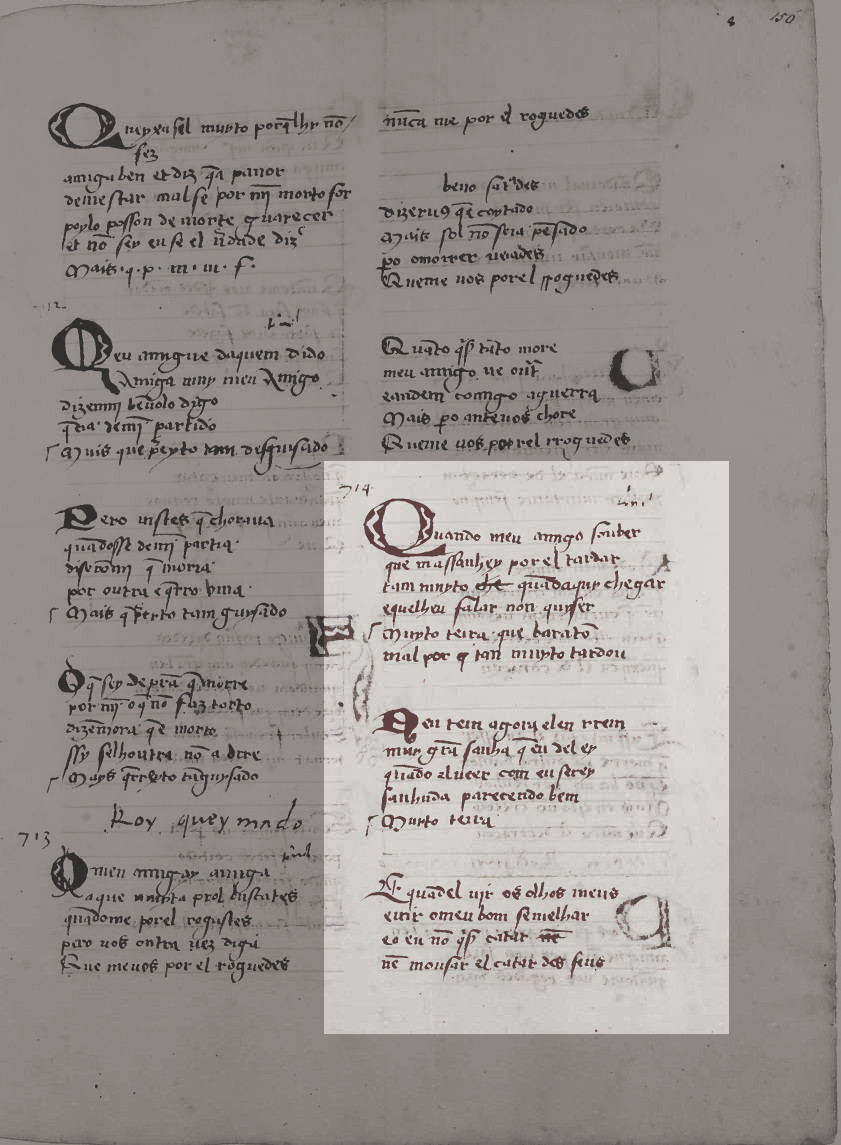 8 150
Quey xasse muyto porq̄ lhr nō
fez
amiga ben et diz q̄a pauor
demestar mal se por mī morto for
poylo posson de morte guarecer
et nō sey eu se el ũdade diz
Mais · q · p · m · m · f ·
Meu amigue daquem dido
Amiga muy meu Amigo
dizemmi benolo digo
q̄ria demī partido
Mais que preyto tam desguisado
Pero uistes q̄ choraua
quādosse demī partia
disecōmi q̄ moria
por outra e q̄rro uina
Mais q̄ preyto tam guysado
O q̄ sey de prā q̄ morre
por mī o q̄ nō faz torto
dizēmora q̄e morto
ssy selhoutra nō a corre
Mays q̄ preyto taguysado
Roy queymado
713
O meu amigay amiga
aque muyta prol buscates
quādome porel rogastes
pero uos outra uez digā
Que meuos por el roguedes
nūca me por el roguedes
beno sardes
dizerum q̄e coytado
Mais sol nō seia pesado
po omorrer ueiades
Queme uos por el rroguedes
Quāto q̄sr tāto more
meu amigo ue out̄
eandem comigo aguerra
Mais po anteuos chore
Queme uos por el rroguedes
714
Quando meu amigo souber
que massanhey por el tardar
tam muyto quādaquy chegar
equelheu falar non quyser
Muyto terra que baratou
mal por q̄ tan muyto tardou
Nen tem agora elen rrem
muy grā sanha q̄ eu del ey
quādo el ueer com eu serey
sanhuda parecendo bem
Muito terra
E quādel uir os olhos meus
euir omeu bom semelhar
eo eu nō q̄sr catar
nē mousar el catar des seus